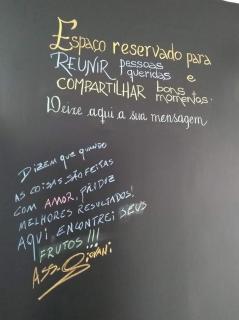 Espaço reservado para
REUNIR pessoas queridas e
COMPARTILHAR bons momentos.
Deixe aqui a sua mensagem
DIZEM QUE QUANDO
AS COISAS SÃO FEITAS
COM AMOR, PRIDIZ
MELHORES RESULTADOS!
AQUI ENCONTREI SEUS
FRUTOS!!!
ASS. GIOVANI